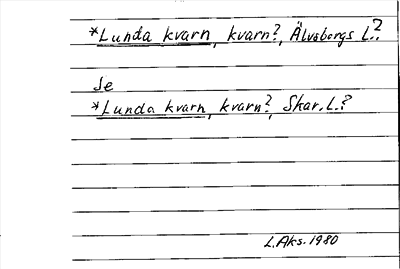 *Lunda kvarn, kvarn?, Älvsborgs L.?
Se
*Lunda kvarn, kvarn?, Skar. L.?
L. Aks. 1980